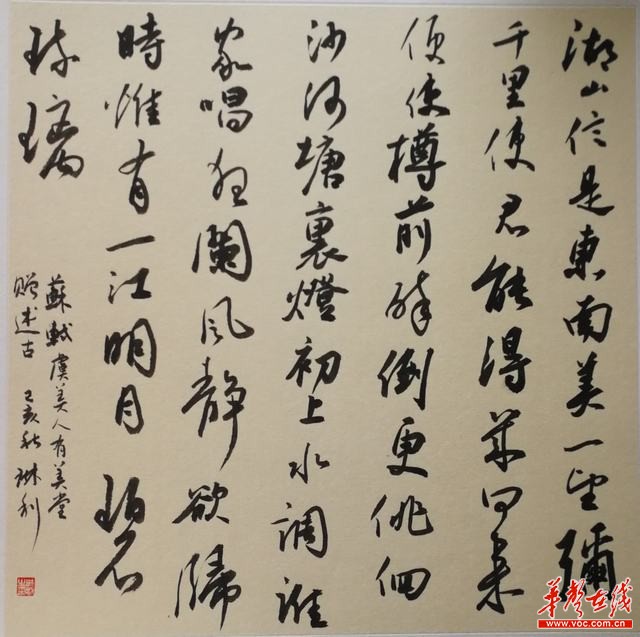 湖山信是東南美一望彌
千里使君能得幾回來
便使樽前醉倒更徘徊
沙河塘裏燈初上水調誰
家唱夜闌風靜欲歸
時惟有一江明月碧
琉璃
蘇軾虞美人有美堂
贈述古 己亥秋琳利
華聲在线
www.voc.com.cn